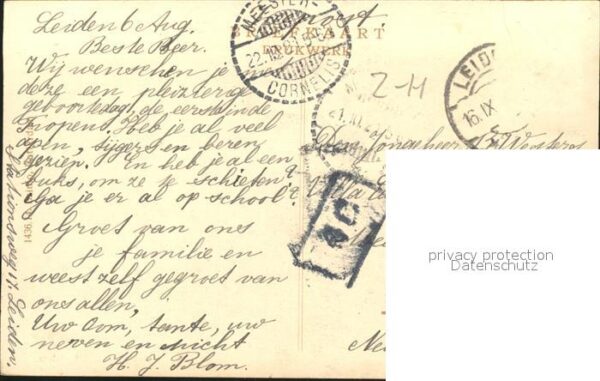 Leiden 6 Aug.
Beste Beer.
Wij wenschen je met
deze een pleizierige
geboortedag, de eerste in de
Tropen. Heb je al veel
apen, tijgers en beren
gezien. En heb je al een
buks, om ze te schieten?
Ga je er al op school?
Groet van ons
je familie en
weest zelf gegroet van
ons allen,
Uw Oom, tante, uw
neven en nicht
H. J. Blom.
Stationsweg 17. Leiden.
1436
post.
BRIEFKAART
DRUKWERK
MEESTER-
CORNELIS
Z-H
LEIDEN
16.IX
Den Jongeheer
Villa
Ne
privacy protection
Datenschutz